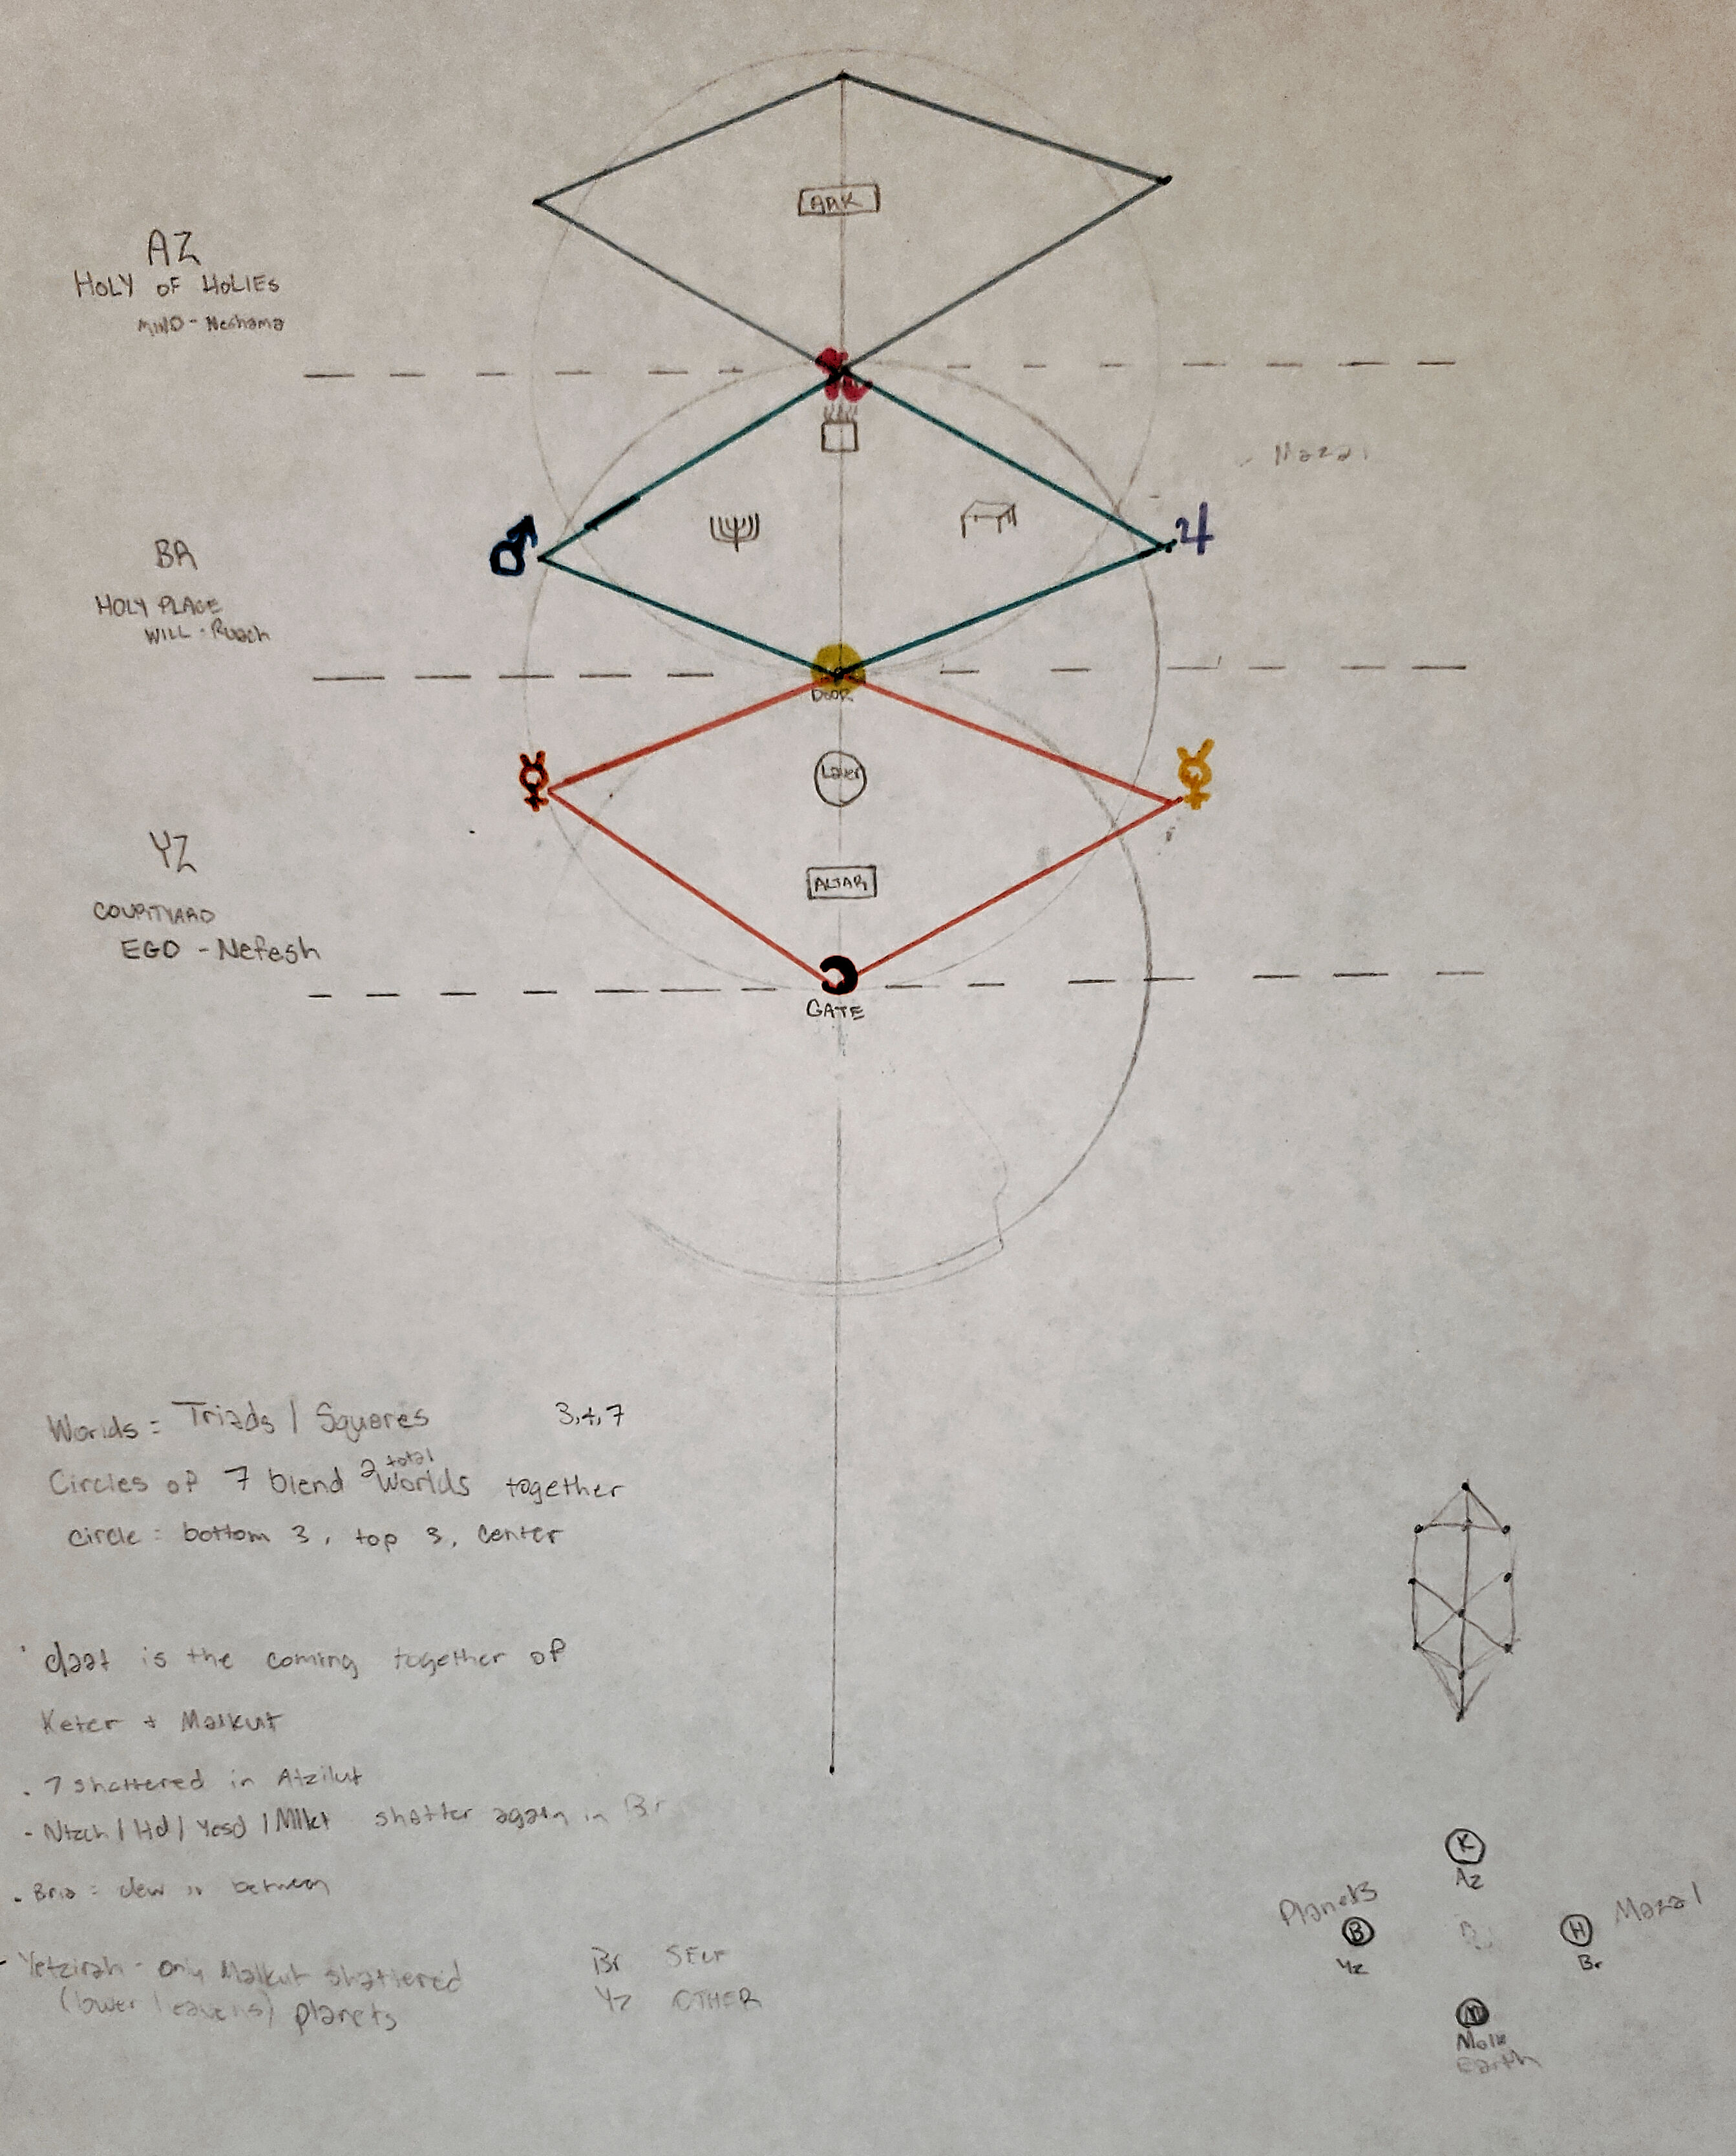 ARK
AZ
HOLY OF HOLIES
MIND - Neshama
Mazal
BR
HOLY PLACE
WILL - Ruach
DOOR
Laver
YZ
ALTAR
COURTYARD
EGO - Nefesh
GATE
Worlds = Triads / Squares 3,4,7
Circles of 7 blend 2 total Worlds together
circle = bottom 3, top 3, center
daat is the coming together of
Keter + Malkut
. 7 shattered in Atzilut
- Ntzch / Hd / Yesd / Mlkt shatter again in Br
. Bria = dew in between
- Yetzirah - only Malkut shattered
(lower heavens) planets
Br SELF
Yz OTHER
K
Az
Planets
B
Yz
H
Mazal
Br
M
Malk
Earth